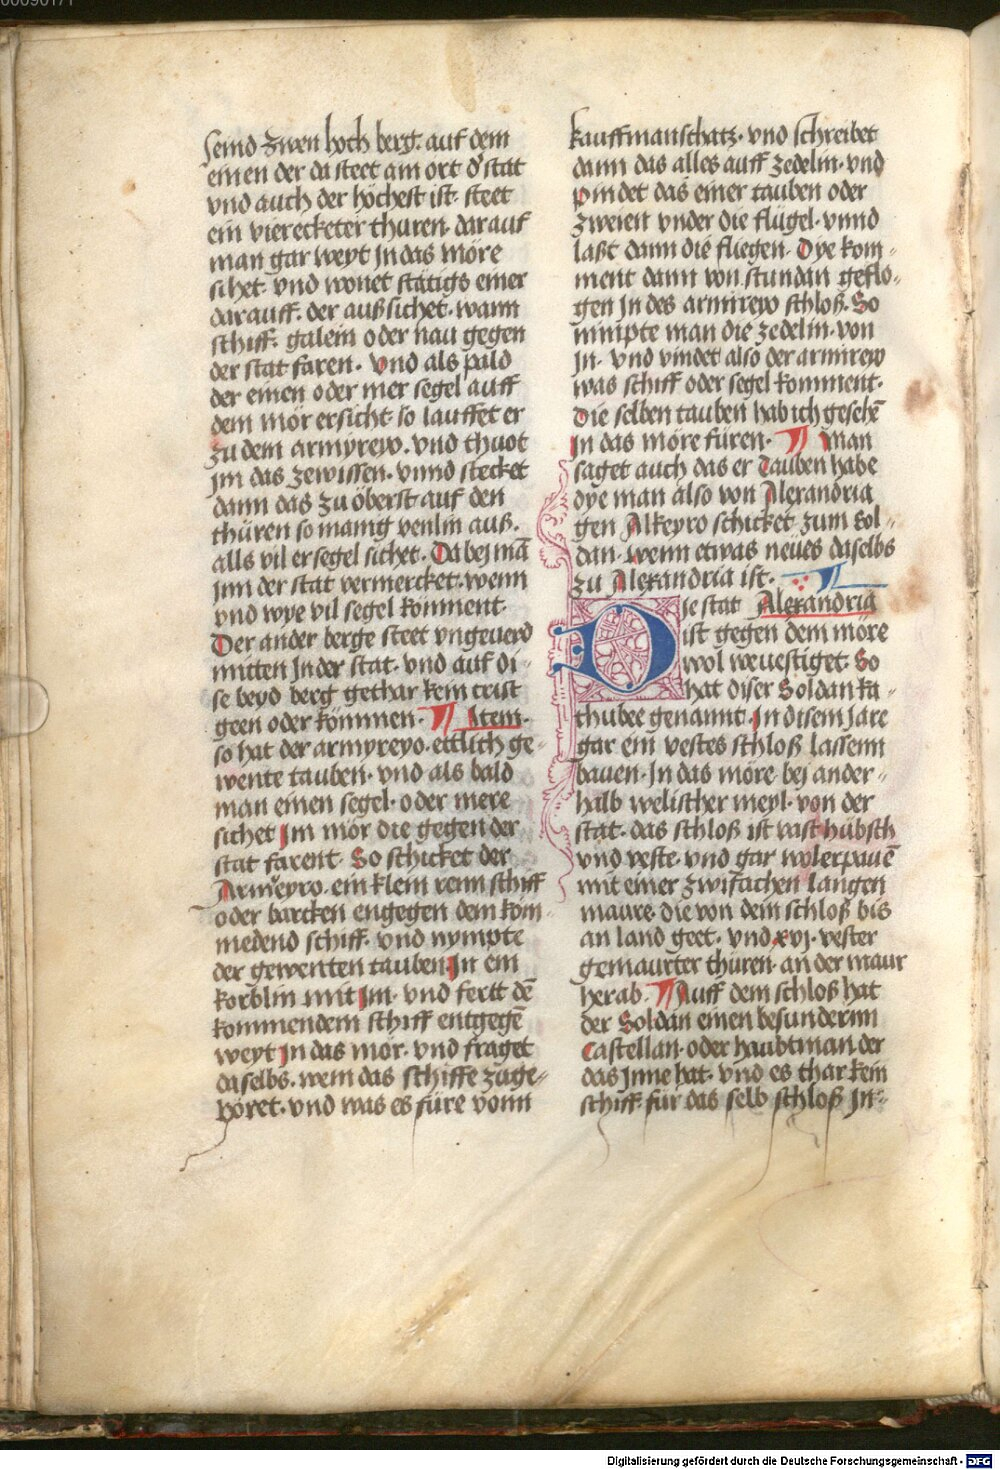 00090171
seind zwen hoch berg. auf dem
einen der da steet am ort d' stat
vnd auch der höchest ist. steet
ein vierecketer thuren. darauf
man gar weyt Jn das möre
sihet. vnd wonet statigs einer
darauff. der außsichet. wann
schiff. galein oder nau gegen
der stat faren. vnd als pald
der einen oder mer segel auff
dem mör ersicht. so lauffet er
zu dem armyreyo. vnd thuot
im das zewissen. vnnd stecket
dann das zu öberst auf den
thüren so manig venlin auß.
alls vil er segel sichet. Da bej mā
jnn der stat vermercket. wenn
vnd wye vil segel komment.
Der ander berge steet vngeuerd
mitten Jn der stat. vnd auf di-
se beyd berg gethar kein crist
geen oder kommen. ¶ Item.
so hat der armyreyo. ettlich ge-
wente tauben. vnd als bald
man einen segel. oder mere
sichet Jm mör die gegen der
stat farent. So schicket der
Armeyro. ein klein renn schiff
oder barcken engegen dem kom-
medend schiff. vnd nympte
der gewenten tauben Jn ein
korblin mit Jm. vnd fertt dē
kommendem schiff entgegē
weyt Jn das mör. vnd fraget
daselbs. wem das schiffe zuge-
höret. vnd was es füre vonn
kauffmanschatz. vnd schreibet
dann das alles auff zedelin. vnd
pindet das einer tauben oder
zweien vnder die flügel. vnnd
laßt dann die fliegen. Dye kom-
ment dann von stundan geflo-
gen Jn des armireyo schloß. So
nimpte man die zedelin. von
Jn. vnd vindet also der armireyo
was schiff oder segel komment.
Die selben tauben hab ich gesehē
Jn das möre füren. ¶ Man
saget auch das er Tauben habe
dye man also von Alexandria
gen Alkeyro schicket zum Sol-
dan. wenn etwas neües daselbs
zu Alexandria ist.
Die stat Alexandria
ist gegen dem möre
wol weuestiget. So
hat diser Soldan ka-
thubee genannt. Jn disem jare
gar ein vestes schloß lassenn
bauen. Jn das möre bej ander-
halb welischer meyl. von der
stat. das schloß ist vast hübsch
vnd veste. vnd gar wolerpauē
mit einer zwifachen langen
maure. die von dem schloß bis
an land geet. vnd xvj. vester
gemaurter thüren. an der maur
herab. ¶ Auff dem schloß hat
der Soldan einen besundernn
Castellan. oder haubtman. der
das Jnne hat. vnd es thar kein
schiff. für das selb schloß Jn-
Digitalisierung gefördert durch die Deutsche Forschungsgemeinschaft - DFG